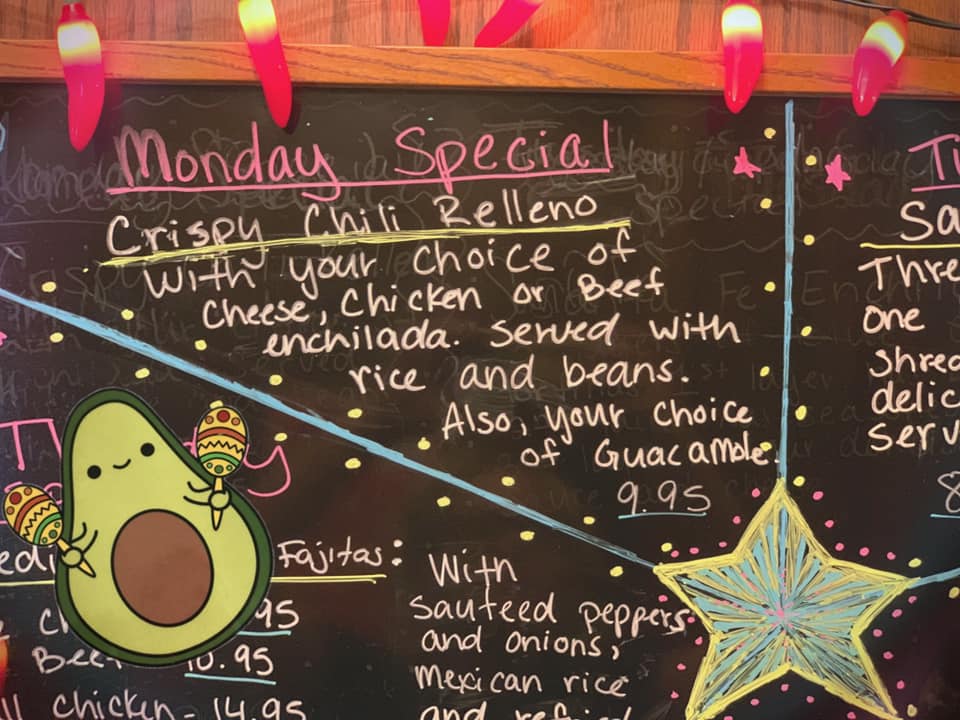 Monday Special
Crispy Chili Relleno
With your choice of
Cheese, Chicken or Beef
enchilada. Served with
rice and beans.
Also, your choice
of Guacamole.
9.95
Thre
one
Shred
delic
serv
Fajitas:
95
Beef 10.95
chicken - 14.95
With
sauteed peppers
and onions,
mexican rice
and